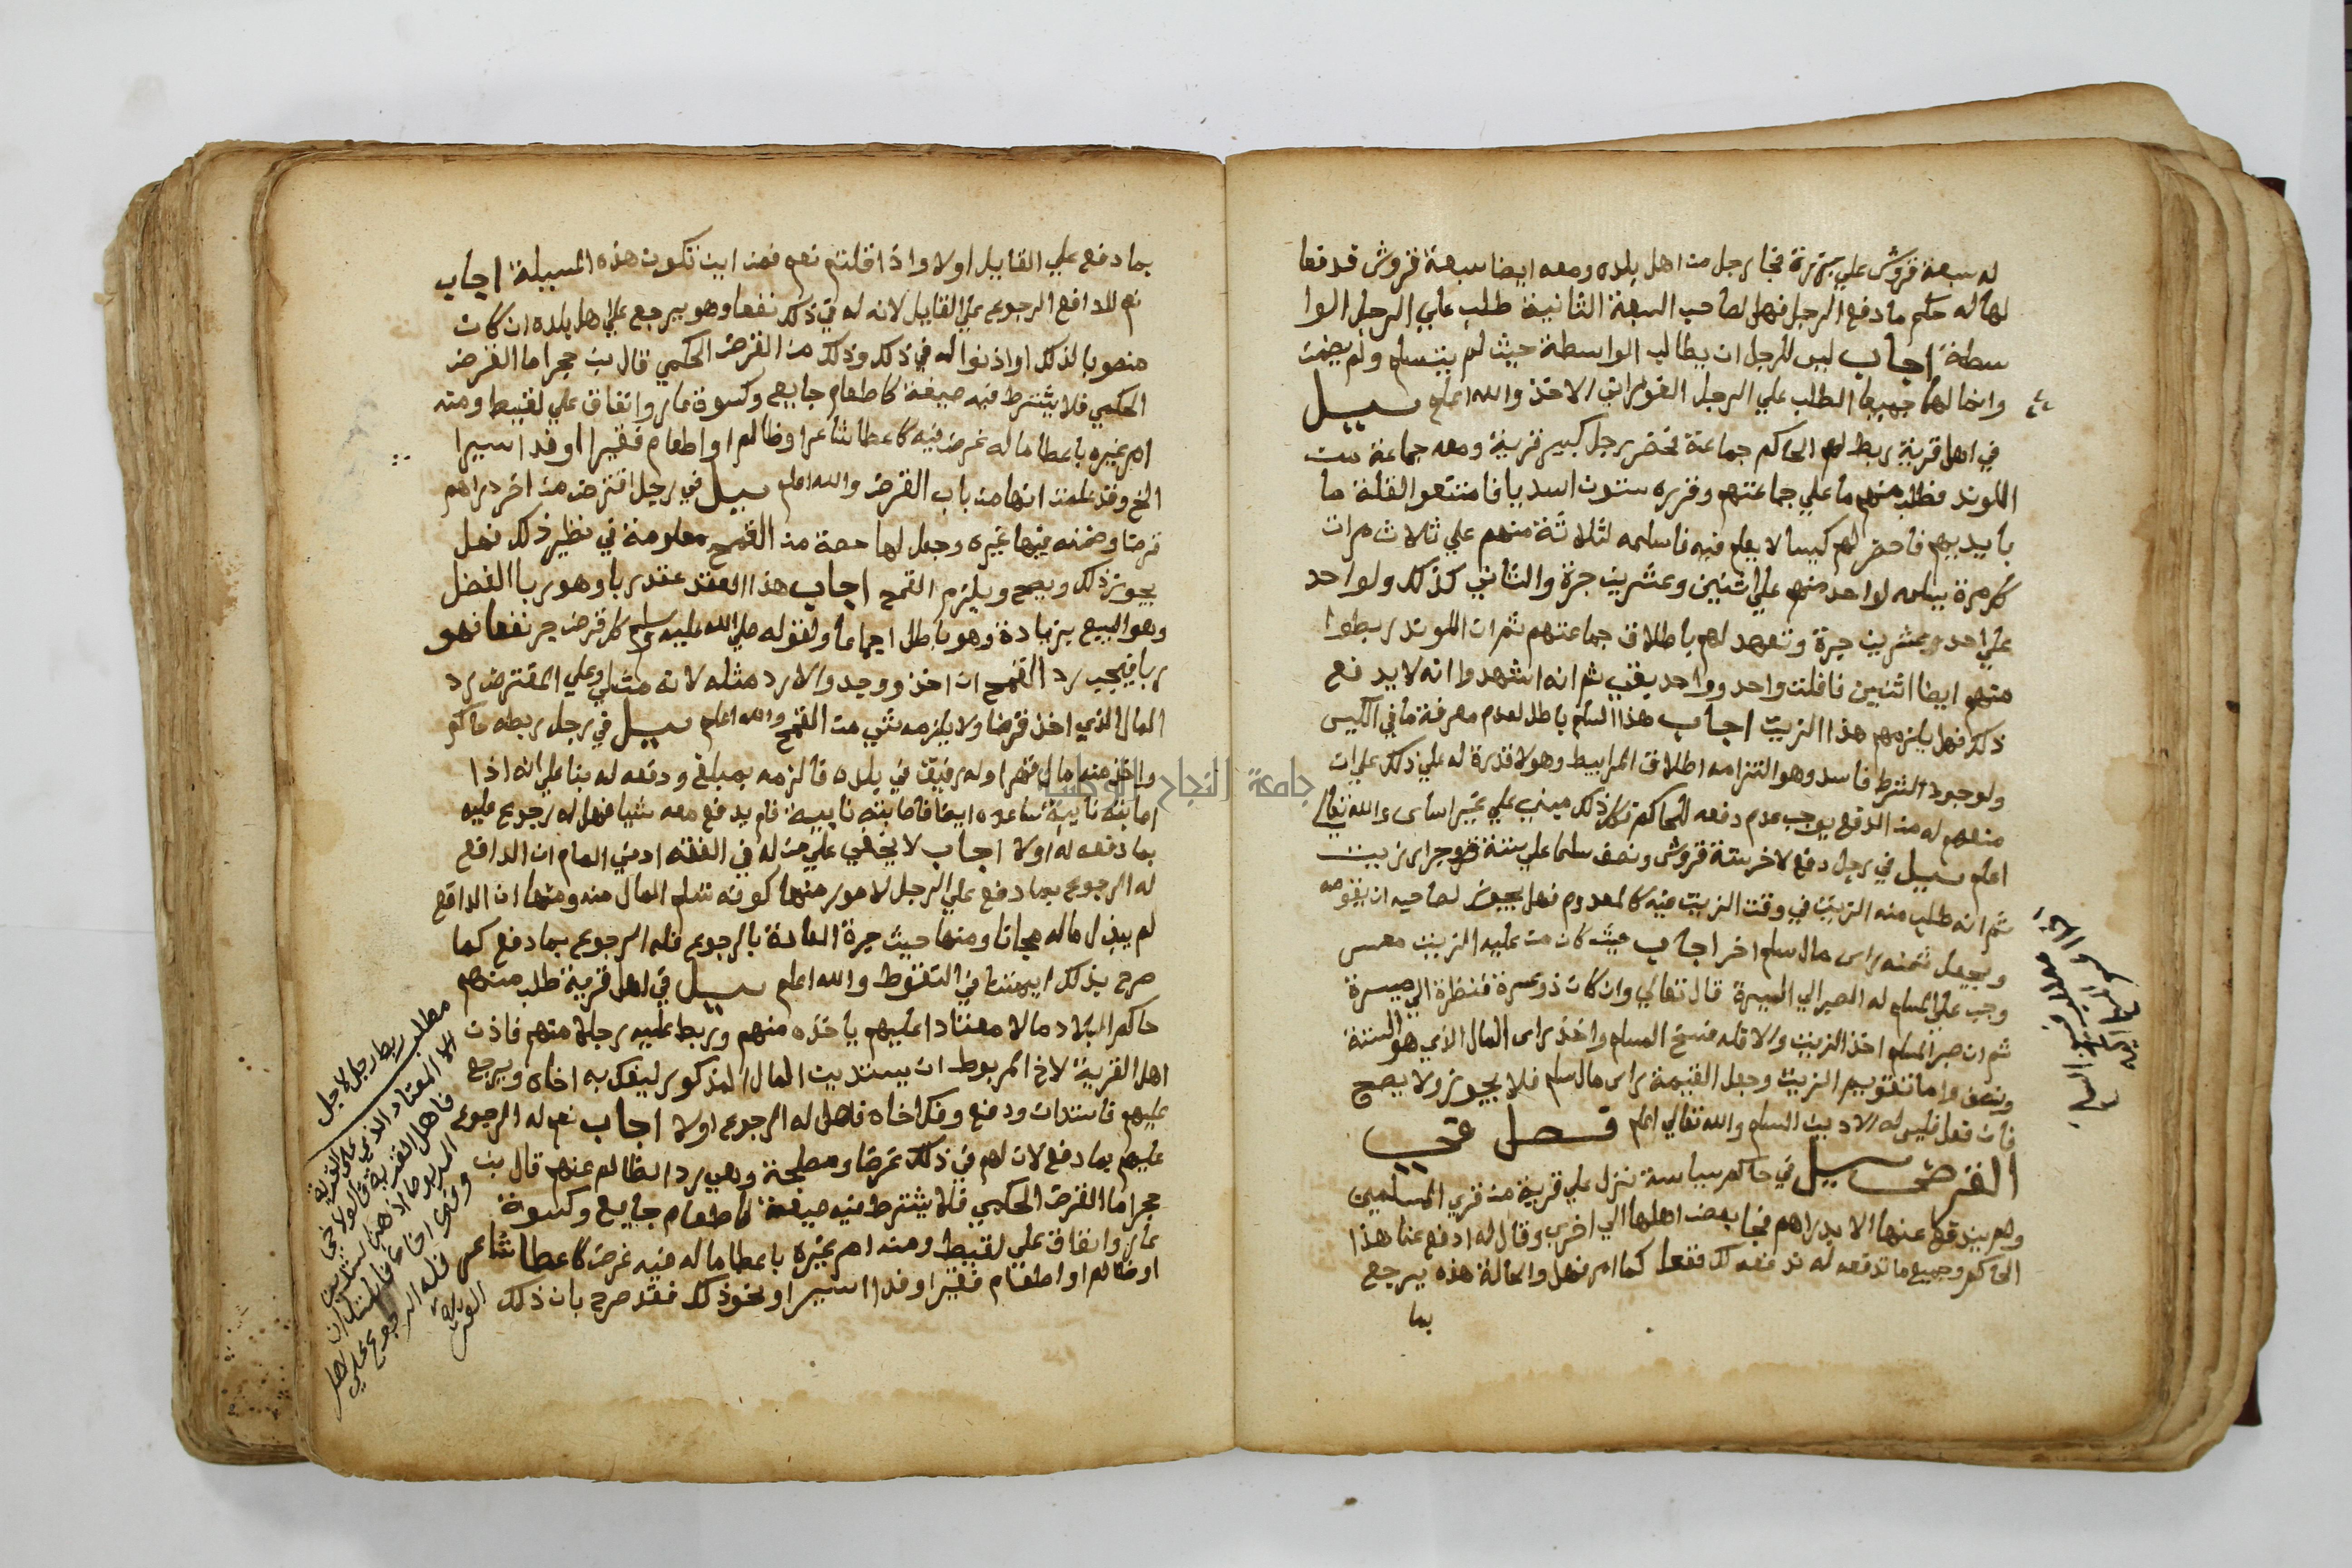 له سبعة قروش علي جرة فجا رجل من اهل بلده ومعه ايضا سبعة قروش فدفعا
لها له حكم ما دفع الرجل فهل لصاحب السبعة الثانية طلب علي الرجل الوا
سطة اجاب ليس للرجل ان يطالب الواسطة حيث لم يتسلم ولم يضمن
وانما لهما جميعا الطلب علي الرجل الاخذ والله اعلم سيل
في اهل قرية ربط لهم الحاكم جماعة فحضر رجل كبير قرية ومعه جماعة من
اللوند فطلب منهم ما علي جماعتهم وقرره ستون اسديا فامتنعوا لقلة ما
بايديهم فاحضر لهم كيسا لا يعلم فيه فاسلمه لثلاثة منهم علي ثلاث مرات
كل مرة يسلمه لواحد منهم علي اثنين وعشرين جرة والثاني كذلك ولواحد
علي احد وعشرين جرة وتعهد لهم باطلاق جماعتهم ثم ان اللوند ربطوا
منهم ايضا اثنين فافلت واحد وواحد بقي ثم انه اشهدوا انه لا يدفع
ذلك فهل يلزمهم هذا الزيت اجاب هذا السلم باطل لعدم معرفة ما في الكيس
ولوجود الشرط فاسد وهو التزامه اطلاق المرابيط وهو لا قدرة له علي ذلك علي ان
منعهم له من الدفع يوجب عدم دفعه للحاكم فكل ذلك مبني علي غير اساس والله تعالي
اعلم سيل في رجل دفع لاخر ستة قروش ونصف سلما علي ستة جرار زيت
ثم انه طلب منه الزيت في وقت الزيت فيه كالمعدوم فهل يجوز لصاحبه ان يقومه
ويجعل ثمنه راس مال سلم اخر اجاب حيث كان من عليه الزيت معسر
وجب علي المسلم له الصبر الي الميسرة قال تعالي وان كان ذو عسرة فنظرة الي ميسرة
ثم ان صبر المسلم اخذ الزيت والا فله فسخ السلم واخذ راس المال الذي هو الستة
ونصف واما تقويم الزيت وجعل القيمة راس مال سلم فلا يجوز ولا يصح
فان فعل فليس له الا دين السلم والله تعالي اعلم فصل في
القرض سيل في حاكم سياسة نزل علي قرية من قري المسلمين
ولم ينفك عنها الا بدراهم فجا بعض اهلها الي اخر وقال له ادفع عنا هذا
الحاكم وجميع ما تدفعه له ندفعه لك ففعل كما امر فهل والحالة هذه يرجع
بما
بما دفع علي القايل اولا واذا قلتم نعم فمن اين تكون هذه المسيلة اجاب
نعم للدافع الرجوع علي القايل لانه له في ذلك نفعا وهو يرجع علي اهل بلده ان كان
منصوبا لذلك او اذنوا له في ذلك وذلك من القرض الحكمي قال بن حجر اما القرض
الحكمي فلا يشترط فيه صيغة كاطعام جايع وكسوة عار وانفاق علي لقيط ومنه
امر غيره باعطا ماله غرض فيه كاعطا شاعر او ظالم او اطعام فقير او فدا اسير
الخ وقد علمت انها من باب القرض والله اعلم سيل في رجل اقترض من اخر دراهم
قرضا وضمنه فيها غيره وجعل لها حصة من القمح معلومة في نظير ذلك فهل
يجوز ذلك ويصح ويلزم القمح اجاب هذا العقد عقد ربا وهو ربا الفضل
وهو البيع بزيادة وهو باطل اجماعا ولقوله صلي الله عليه وسلم كل قرض جر نفعا فهو
ربا فيجب رد القمح ان اخذ ووجد والا رد مثله لانه مثلي وعلي المقترض رد
المال الذي اخذ قرضا ولا يلزمه شي من القمح والله اعلم سيل في رجل ربطه حاكم
واخذ منه مال قهرا وله رفيق في بلده فالزمه بمبلغ ودفعه له بنا علي انه اذا
اصابته نايبة ساعده ايضا فاصابته نايبة فلم يدفع معه شيا فهل له رجوع عليه
بما دفعه له اولا اجاب لا يخفي علي من له في الفقه ادني المام ان الدافع
له الرجوع بما دفع علي الرجل لامور منها كونه تسلم المال منه ومنها ان الدافع
لم يبذل ماله مجانا ومنها حيث جرة العادة بالرجوع فله الرجوع بما دفع كما
صرح بذلك ايمتنا في النقوط والله اعلم سيل في اهل قرية طلب منهم
حاكم البلاد مالا معتادا عليهم ياخذه منهم وربط عليه رجلا منهم فاذن
اهل القرية لاخ المربوط ان يستدين المال المذكور ليفك به اخاه ويرجع
عليهم فاستدان ودفع وفك اخاه فهل له الرجوع اولا اجاب نعم له الرجوع
عليهم بما دفع لان لهم في ذلك غرضا ومصلحة وهي رد الظالم عنهم قال بن
حجر اما القرض الحكمي فلا يشترط فيه صيغة كاطعام جايع وكسوة
عار وانفاق علي لقيط ومنه امر غيره باعطا ماله فيه غرض كاعطا شاعر
او ظالم او اطعام فقير او فدا اسير او نحو ذلك فقد صرح بان ذلك
مطلب ربط رجل لاجل
المال المعتاد الذي علي القرية
فاهل القرية قالوا لاخي
المربوط
فله الرجوع علي
جامعة النجاح الوطنية